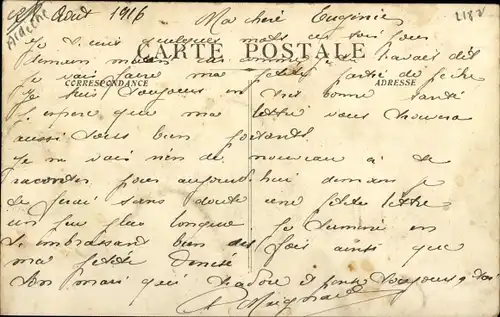 Août 1916 Ma cheré Eugénie
Ardèche
2182
Je quelques mots ce soir pour
CARTE POSTALE
demain matin travail dès
CORRESPONDANCE
ADRESSE
Je vais faire ma petite partie de pêche
Je suis toujours en bonne santé
J'espère que ma lettre vous trouvera
aussi tous bien portants
Je ne vais rien de nouveau à te
raconter pour aujourd'hui demain je
te ferai sans doute une petite lettre
un peu plus longue Je termine en
t'embrassant bien des fois ainsi que
ma petite Denise
Ton mari qui t'adore et pense toujours a toi